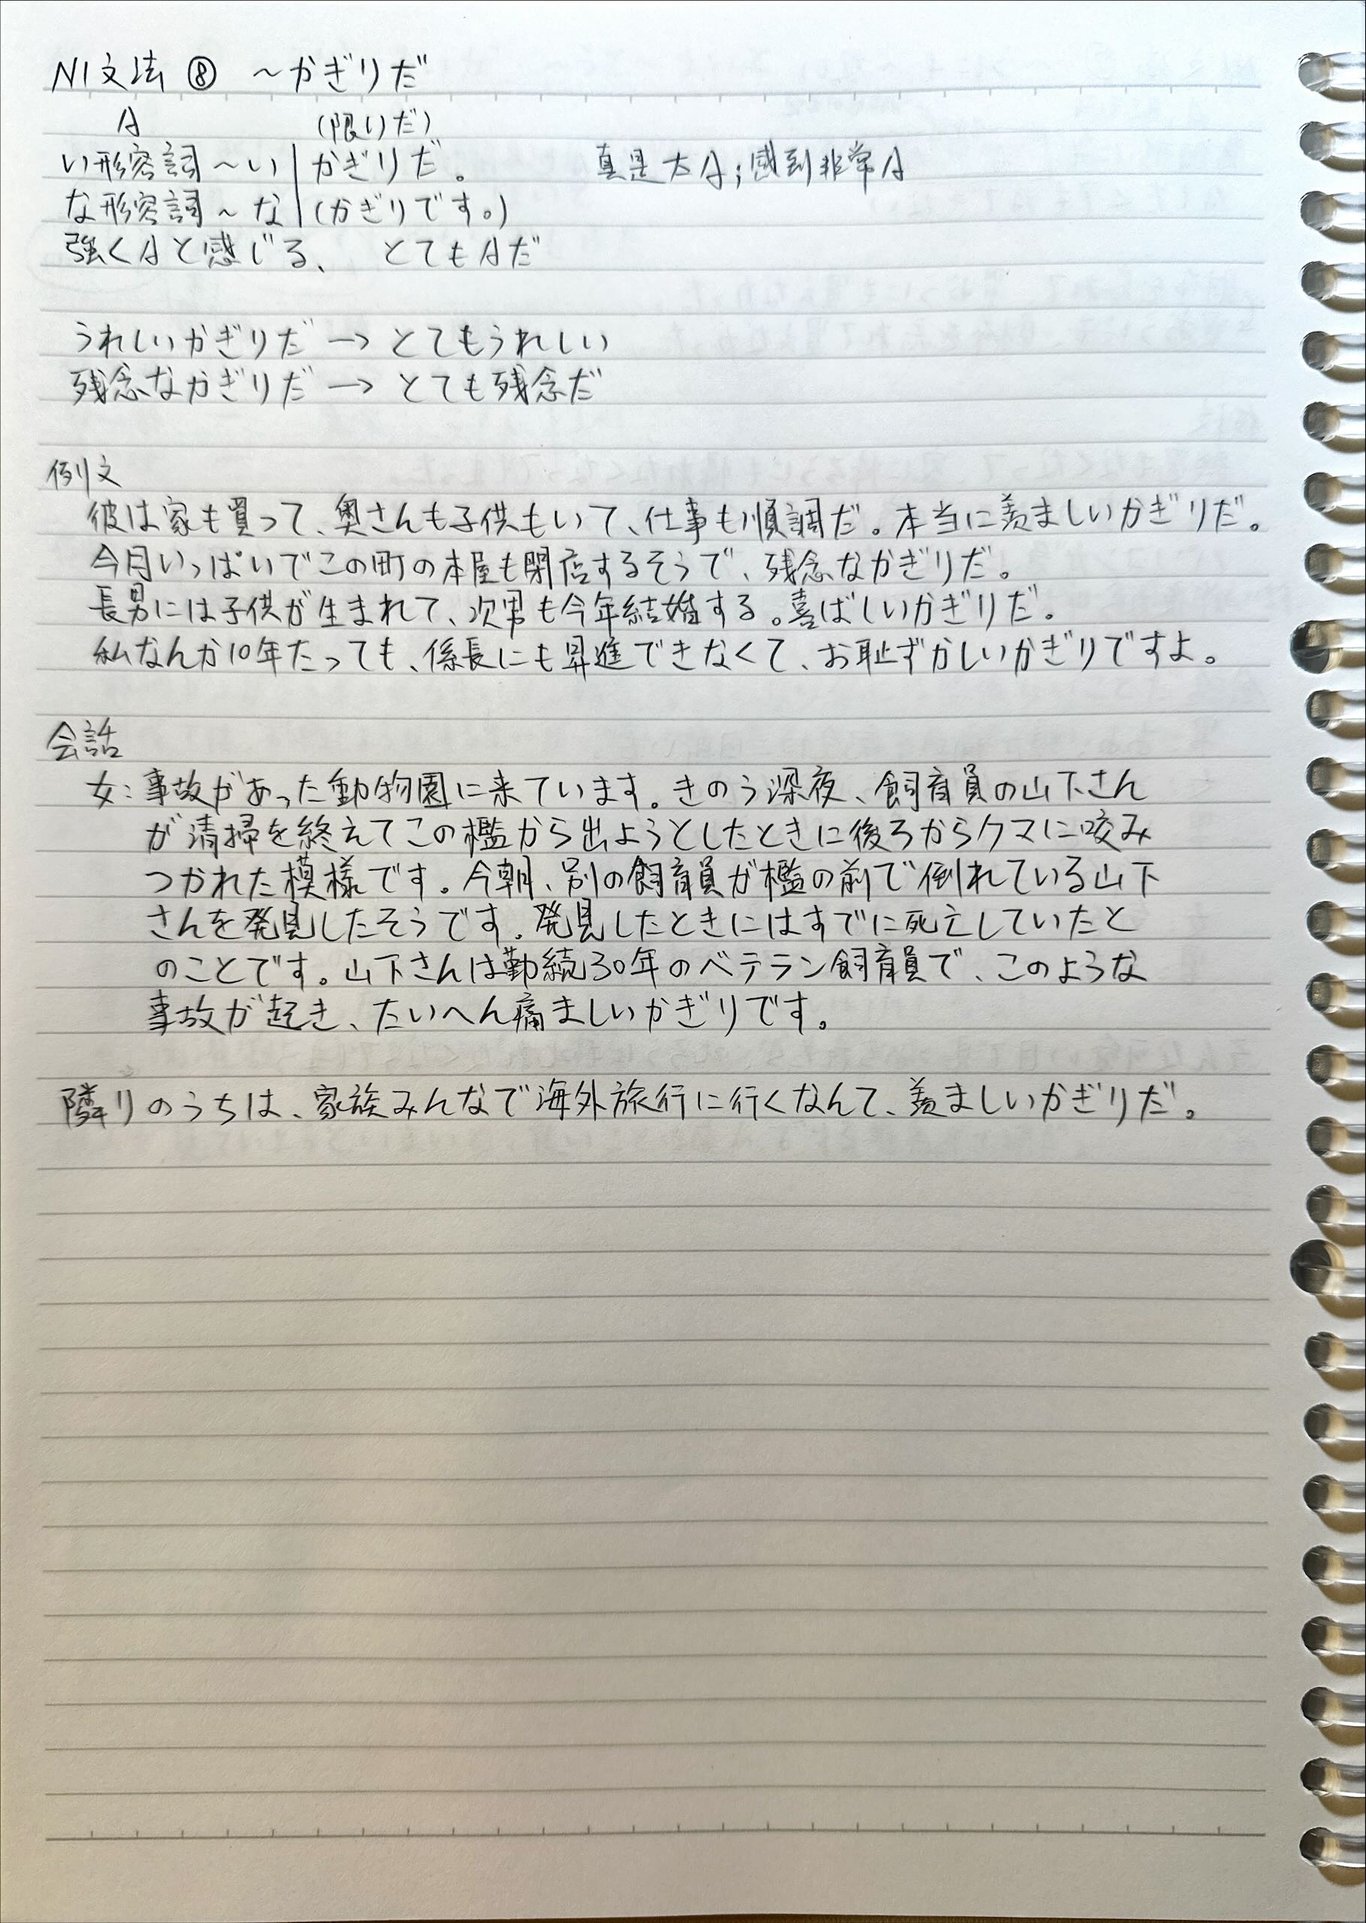 N1文法 ⑧ ～かぎりだ
A (限りだ)
い形容詞～い|かぎりだ。 真是太A;感到非常A
な形容詞～な|(かぎりです。)
強くAと感じる、 とてもAだ
うれしいかぎりだ → とてもうれしい
残念なかぎりだ → とても残念だ
例文
彼は家も買って、奥さんも子供もいて、仕事も順調だ。本当に羨ましいかぎりだ。
今月いっぱいでこの町の本屋も閉店するそうで、残念なかぎりだ。
長男には子供が生まれて、次男も今年結婚する。喜ばしいかぎりだ。
私なんか10年たっても、係長にも昇進できなくて、お恥ずかしいかぎりですよ。
会話
女:事故があった動物園に来ています。きのう深夜、飼育員の山下さん
が清掃を終えてこの檻から出ようとしたときに後ろからクマに咬み
つかれた模様です。今朝、別の飼育員が檻の前で倒れている山下
さんを発見したそうです。発見したときにはすでに死亡していたと
のことです。山下さんは勤続30年のベテラン飼育員で、このような
事故が起き、たいへん痛ましいかぎりです。
隣りのうちは、家族みんなで海外旅行に行くなんて、羨ましいかぎりだ。